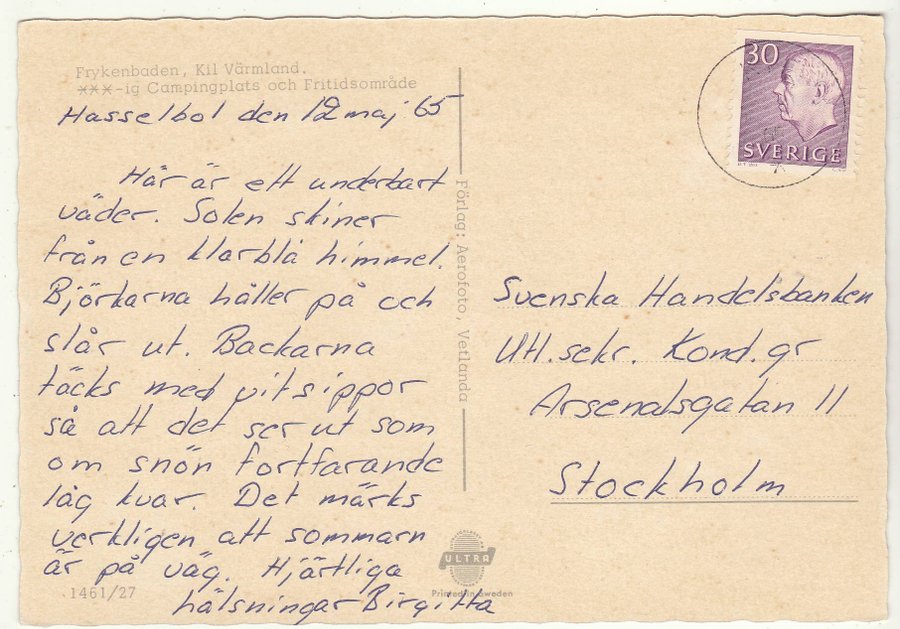 Frykenbaden, Kil Värmland.
***-ig Campingplats och Fritidsområde
Hasselbol den 12 maj 65
Här är ett underbart
väder. Solen skiner
från en klarblå himmel.
Björkarna håller på och
slår ut. Backarna
täcks med vitsippor
så att det ser ut som
om snön fortfarande
låg kvar. Det märks
verkligen att sommarn
är på väg. Hjärtliga
hälsningar Birgitta
1461/27
Förlag: Aerofoto, Vetlanda
ULTRA
Printed in Sweden
30
SVERIGE
Svenska Handelsbanken
Utl. sekr. Kond. gr
Arsenalsgatan 11
Stockholm